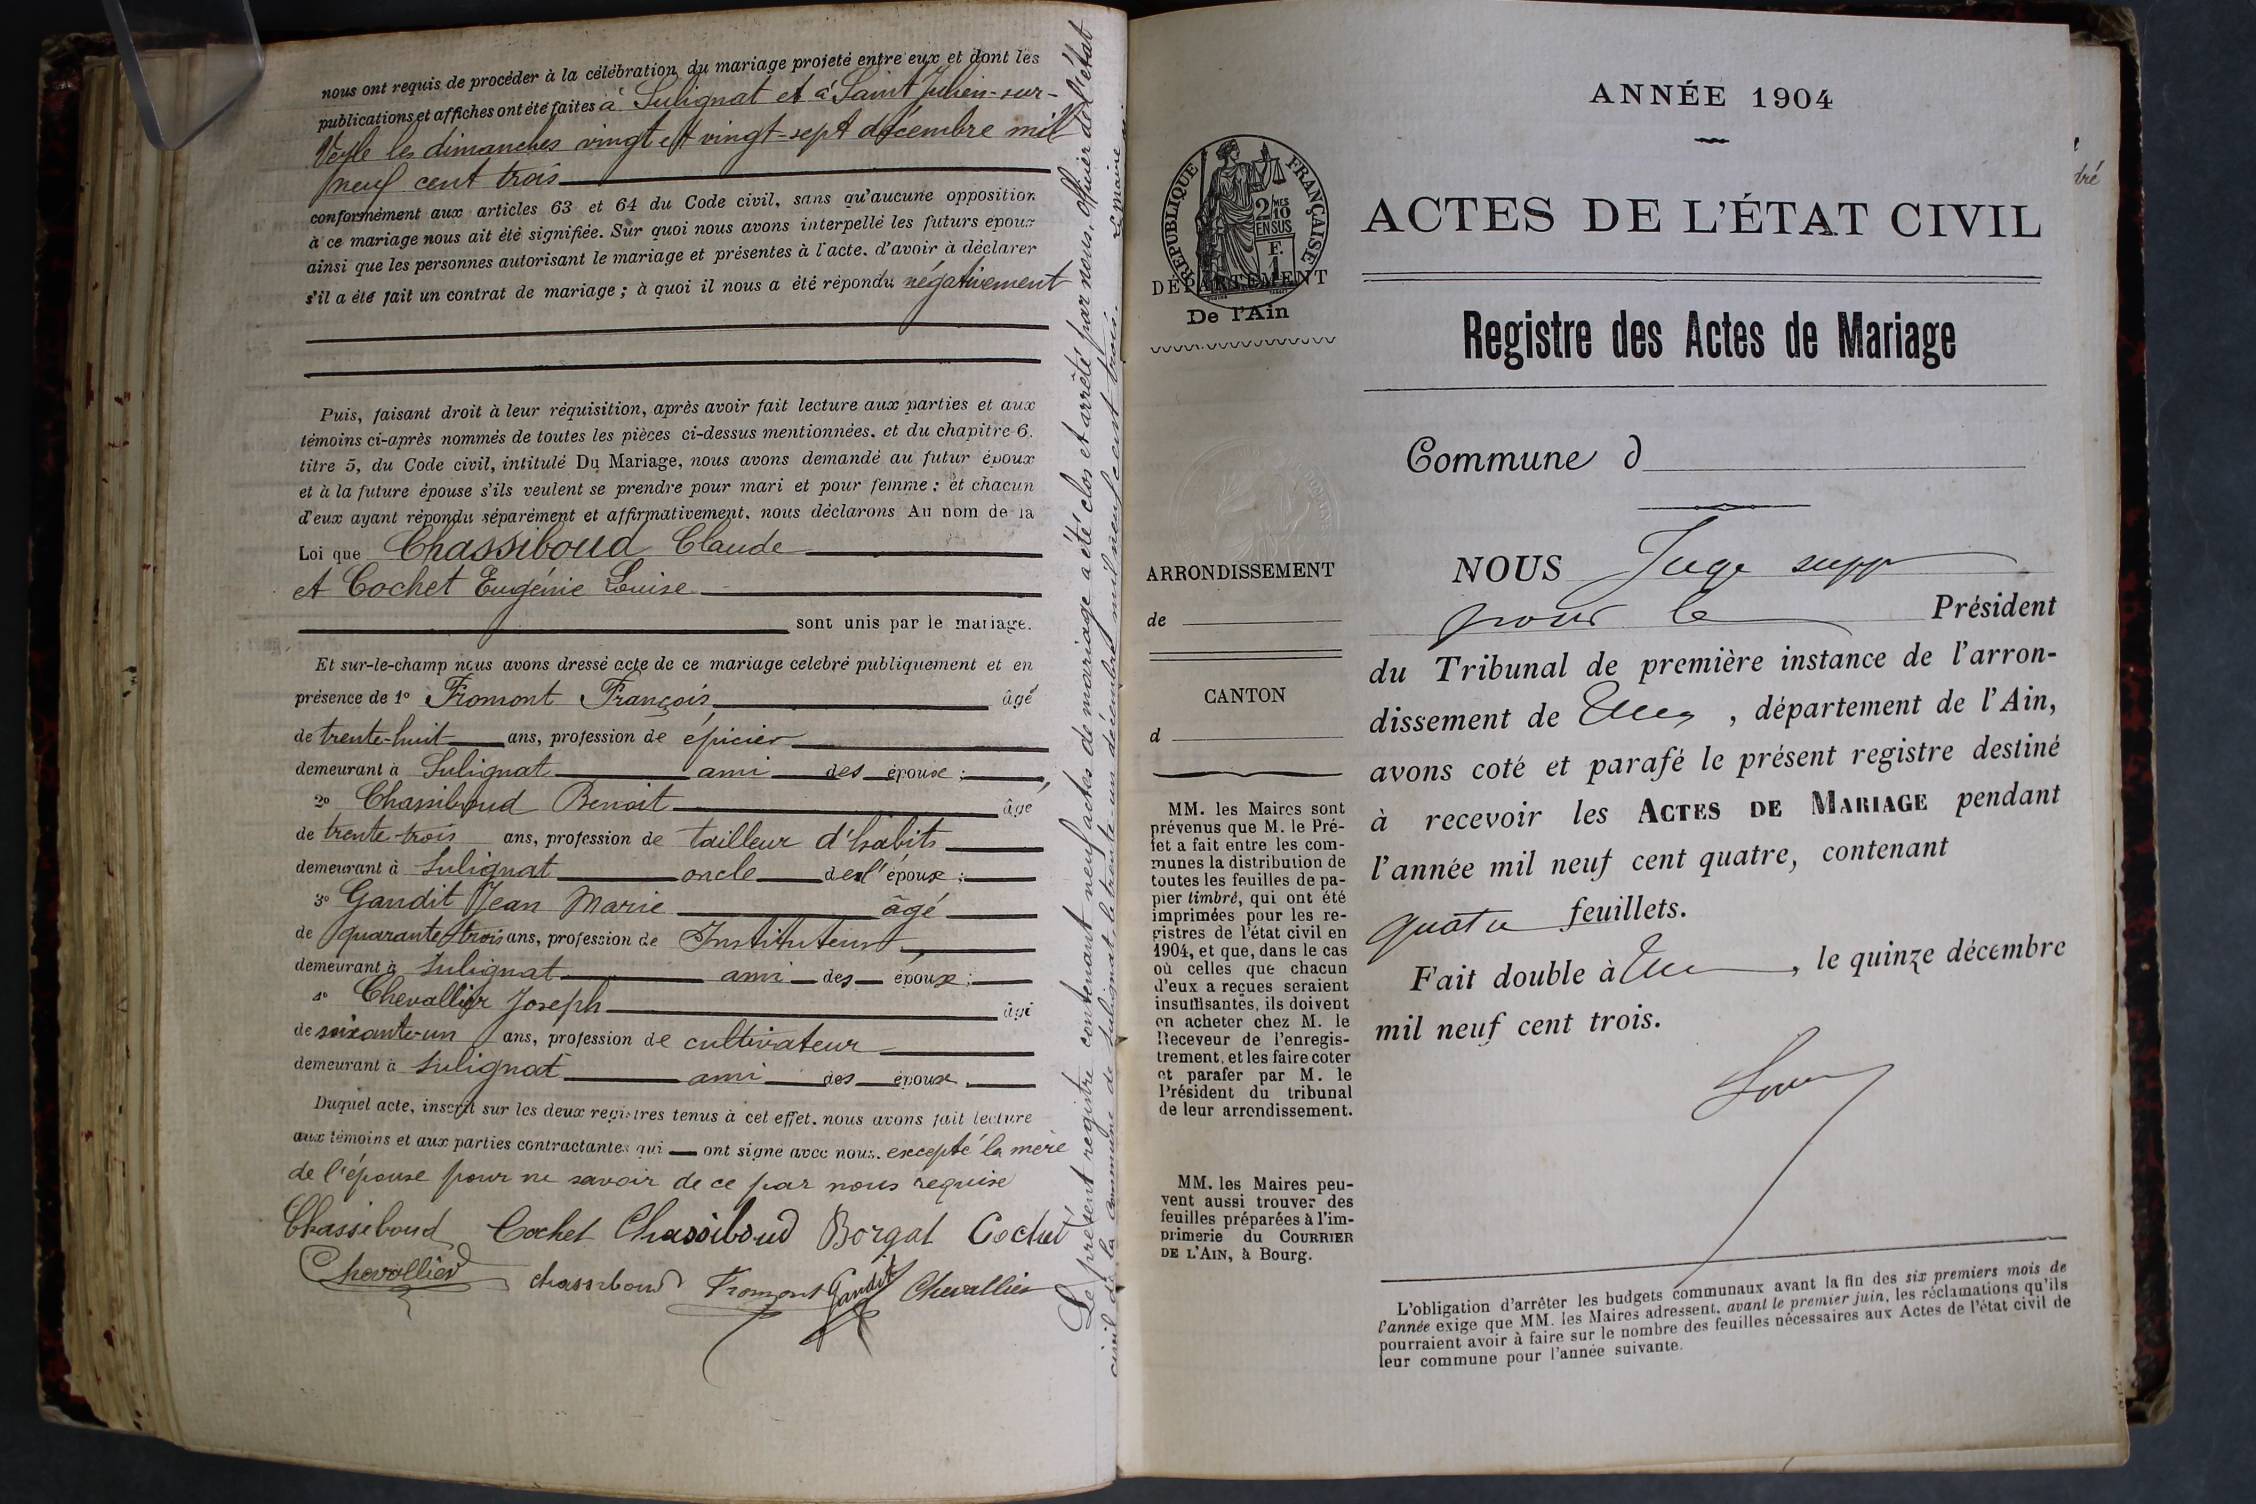 nous ont requis de procéder à la célébration du mariage projeté entre eux et dont les
publications et affiches ont été faites à Sulignat et à Saint Julien-sur-
Veyle les dimanches vingt et vingt-sept décembre mil
neuf cent trois
conformément aux articles 63 et 64 du Code civil, sans qu'aucune opposition
à ce mariage nous ait été signifiée. Sur quoi nous avons interpellé les futurs époux
ainsi que les personnes autorisant le mariage et présentes à l'acte, d'avoir à déclarer
s'il a été fait un contrat de mariage ; à quoi il nous a été répondu négativement
Puis, faisant droit à leur réquisition, après avoir fait lecture aux parties et aux
témoins ci-après nommés de toutes les pièces ci-dessus mentionnées, et du chapitre 6,
titre 5, du Code civil, intitulé Du Mariage, nous avons demandé au futur époux
et à la future épouse s'ils veulent se prendre pour mari et pour femme ; et chacun
d'eux ayant répondu séparément et affirmativement, nous déclarons Au nom de la
Loi que Chassiboud Claude
et Cochet Eugénie Louise
sont unis par le mariage.
Et sur-le-champ nous avons dressé acte de ce mariage célébré publiquement et en
présence de 1° Fromont François âgé
de trente-huit ans, profession de épicier
demeurant à Sulignat ami des époux ;
2° Chassiboud Benoit âgé
de trente-trois ans, profession de tailleur d'habits
demeurant à Sulignat oncle de l'époux ;
3° Gandit Jean Marie âgé
de quarante-trois ans, profession de Instituteur
demeurant à Sulignat ami des époux ;
4° Chevallier Joseph âgé
de soixante-un ans, profession de cultivateur
demeurant à Sulignat ami des époux.
Duquel acte, inscrit sur les deux registres tenus à cet effet, nous avons fait lecture
aux témoins et aux parties contractantes qui ont signé avec nous. excepté la mère
de l'épouse pour ne savoir de ce par nous requise
Chassiboud Cochet Chassiboud Borgat Cochet
Chevallier chassiboud Fromont Gandit Chevallier
Le présent registre contenant neuf actes de mariage a été clos et arrêté par nous, officier de l'état
civil de la commune de Sulignat le trente-un décembre mil neuf cent trois.
Le maire
ANNÉE 1904
RÉPUBLIQUE FRANÇAISE
2 MES
10
EN SUS
F.
1
ACTES DE L'ÉTAT CIVIL
DÉPARTEMENT
De l'Ain
Registre des Actes de Mariage
Commune d
ARRONDISSEMENT
de
CANTON
d
MM. les Maires sont
prévenus que M. le Pré-
fet a fait entre les com-
munes la distribution de
toutes les feuilles de pa-
pier timbré, qui ont été
imprimées pour les re-
gistres de l'état civil en
1904, et que, dans le cas
où celles que chacun
d'eux a reçues seraient
insuffisantes, ils doivent
en acheter chez M. le
Receveur de l'enregis-
trement, et les faire coter
et parafer par M. le
Président du tribunal
de leur arrondissement.
MM. les Maires peu-
vent aussi trouver des
feuilles préparées à l'im-
primerie du COURRIER
DE L'AIN, à Bourg.
NOUS Juge supp
pour le Président
du Tribunal de première instance de l'arron-
dissement de , département de l'Ain,
avons coté et parafé le présent registre destiné
à recevoir les ACTES DE MARIAGE pendant
l'année mil neuf cent quatre, contenant
quatre feuillets.
Fait double à , le quinze décembre
mil neuf cent trois.
L'obligation d'arrêter les budgets communaux avant la fin des six premiers mois de
l'année exige que MM. les Maires adressent, avant le premier juin, les réclamations qu'ils
pourraient avoir à faire sur le nombre des feuilles nécessaires aux Actes de l'état civil de
leur commune pour l'année suivante.